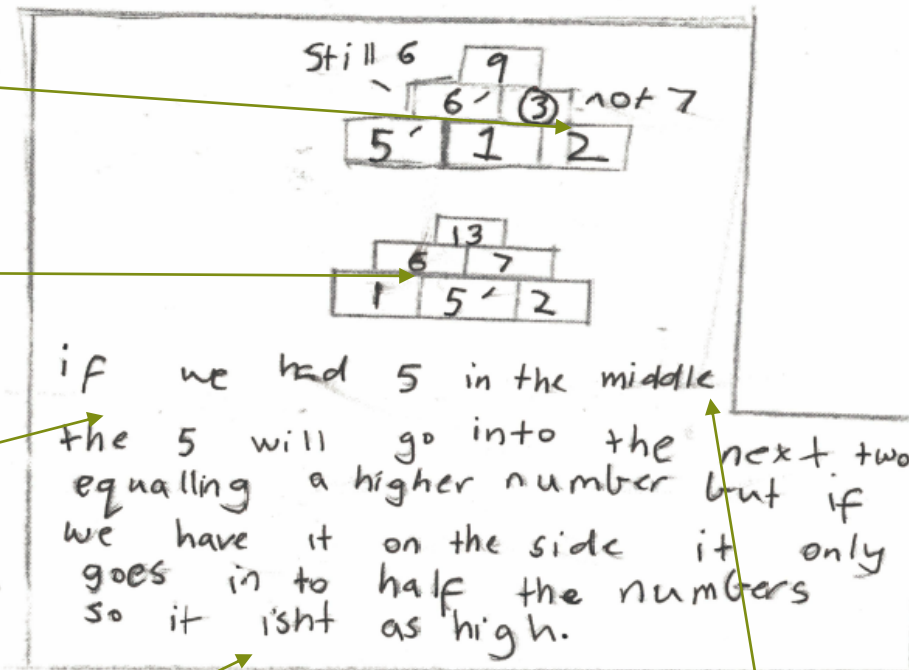 Still 6
9
6 3 not 7
5 1 2
13
6 7
1 5 2
if we had 5 in the middle
the 5 will go into the next two
equalling a higher number but if
we have it on the side it only
goes in to half the numbers
so it isht as high.